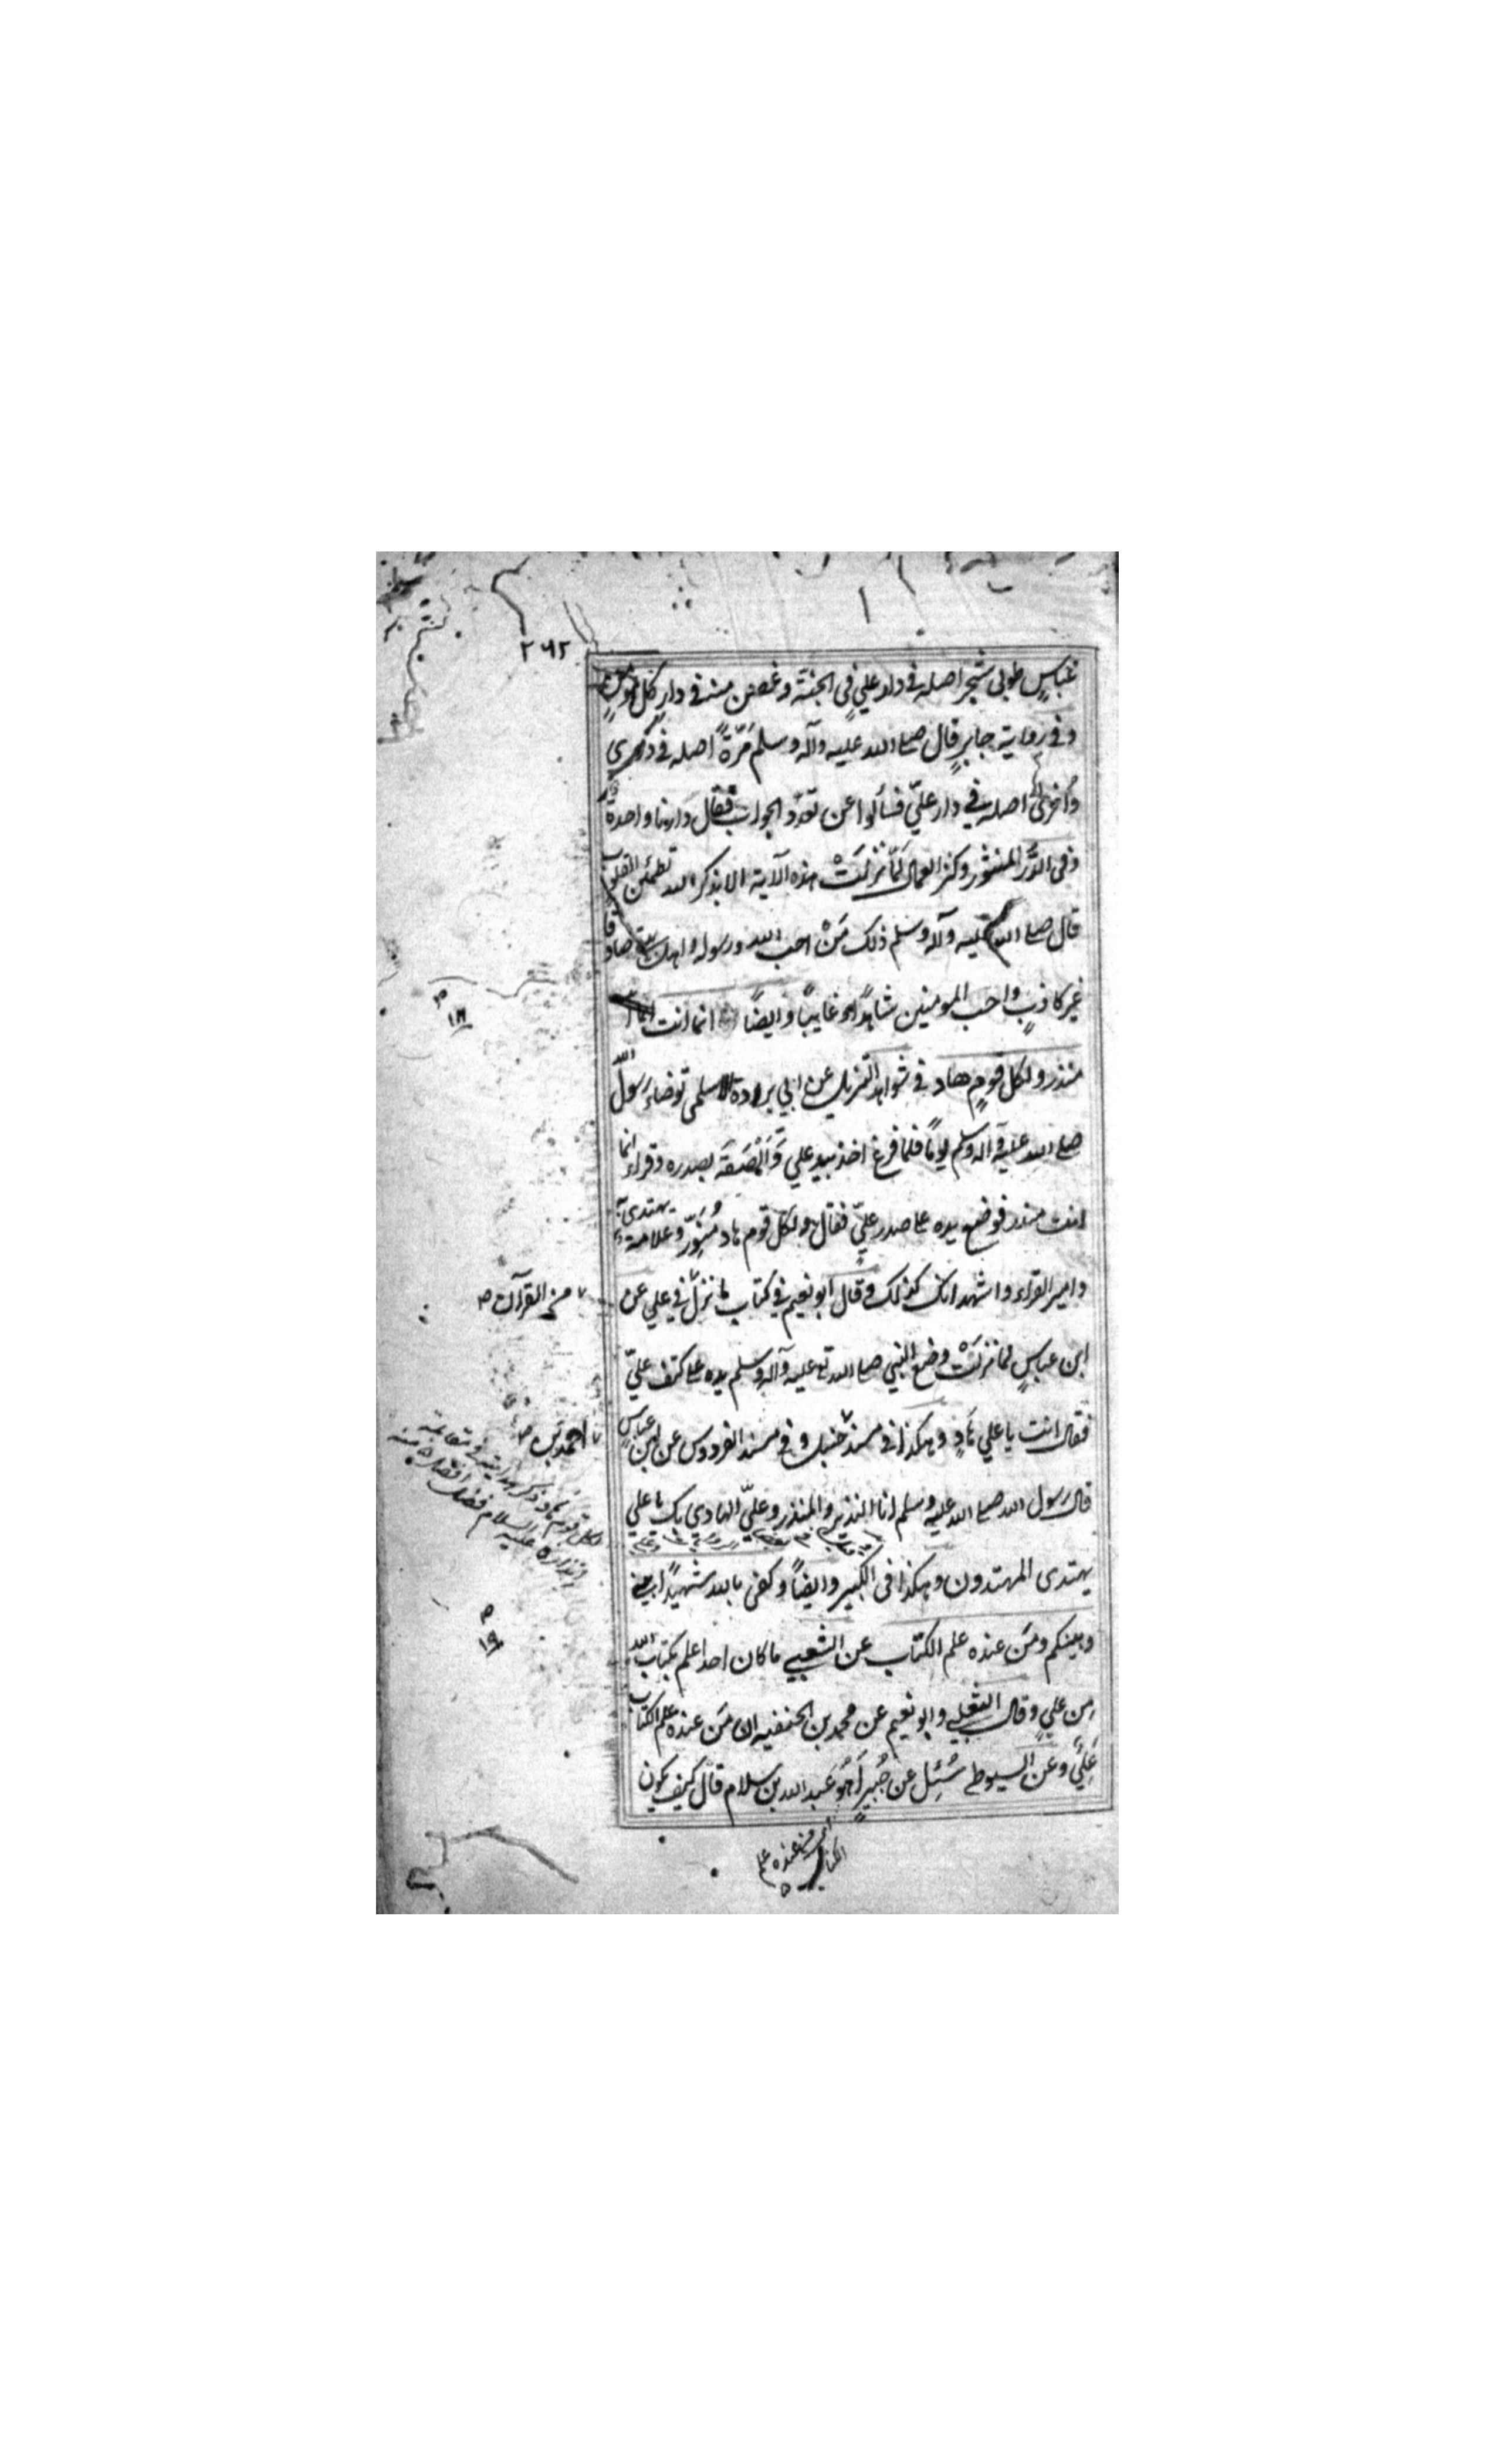 ۲۶۲
عباسٍ طوبى شجر اصله في دار عليٍ في الجنة وغصن منه في دار كل مومنٍ
وفي رواية جابرٍ قال صلى الله عليه وآله وسلم مرّةً اصله في داري
واُخرىٰ اصله في دار عليّ فسألوا عن تعدّد الجواب فقال دارنا واحدة
وفى الدُّر المنثور وكنز العمال لمّا نزلَتْ هذه الآية الا بذكر الله تطمئن القلوب
قال صلى الله عليه وآله وسلم ذلك مَنْ احب الله ورسوله واهل بيتي صادقا
غير كاذبٍ واحب المومنين شاهدًا وغايبًا وايضًا انما انت
منذر ولكل قومٍ هاد في شواهد التنزيل عن ابي بردة الاسلمى توضاء رسول الله
صلى الله عليه وآله وسلم يومًا فلما فرغ اخذ بيد علي وَّاَلْصَقَه بصدره وقراء انما
انت منذر فوضع يده على صدر عليّ فقال ولكل قوم هاد
وامير القراء واشهد انك كذلك وقال ابو نعيم في كتاب ما نزل في علي عن
من القرآن
ابن عباسٍ لما نزلَتْ وضع النبي صلى الله عليه وآله وسلم يده على كتف عليّ
فقال انت يا علي هَادٍ وهكذا في مسند حنبل وفي مسند الفردوس عن ابن عباسٍ
احمد بن
قال رسول الله صلى الله عليه وسلم انا النذير والمنذر وعليّ الهادي بك يا علي
يهتدى المهتدون وهكذا فى الكبير وايضًا وكفى بالله شهيدًا بيني
وبينكم ومَن عنده علم الكتاب عن الشعبي ما كان احد اعلم بكتاب الله
مِن عليٍ وقال الثعلبي وابو نعيم عن محمد بن الحنفيه ان مَن عنده علم الكتاب
عَلِيٌّ وعَن السيوطي سُئِل عن جُبيرٍ اَهُوَ عبد الله بن سلام قال كيف يكون
من عنده علم
الكتاب